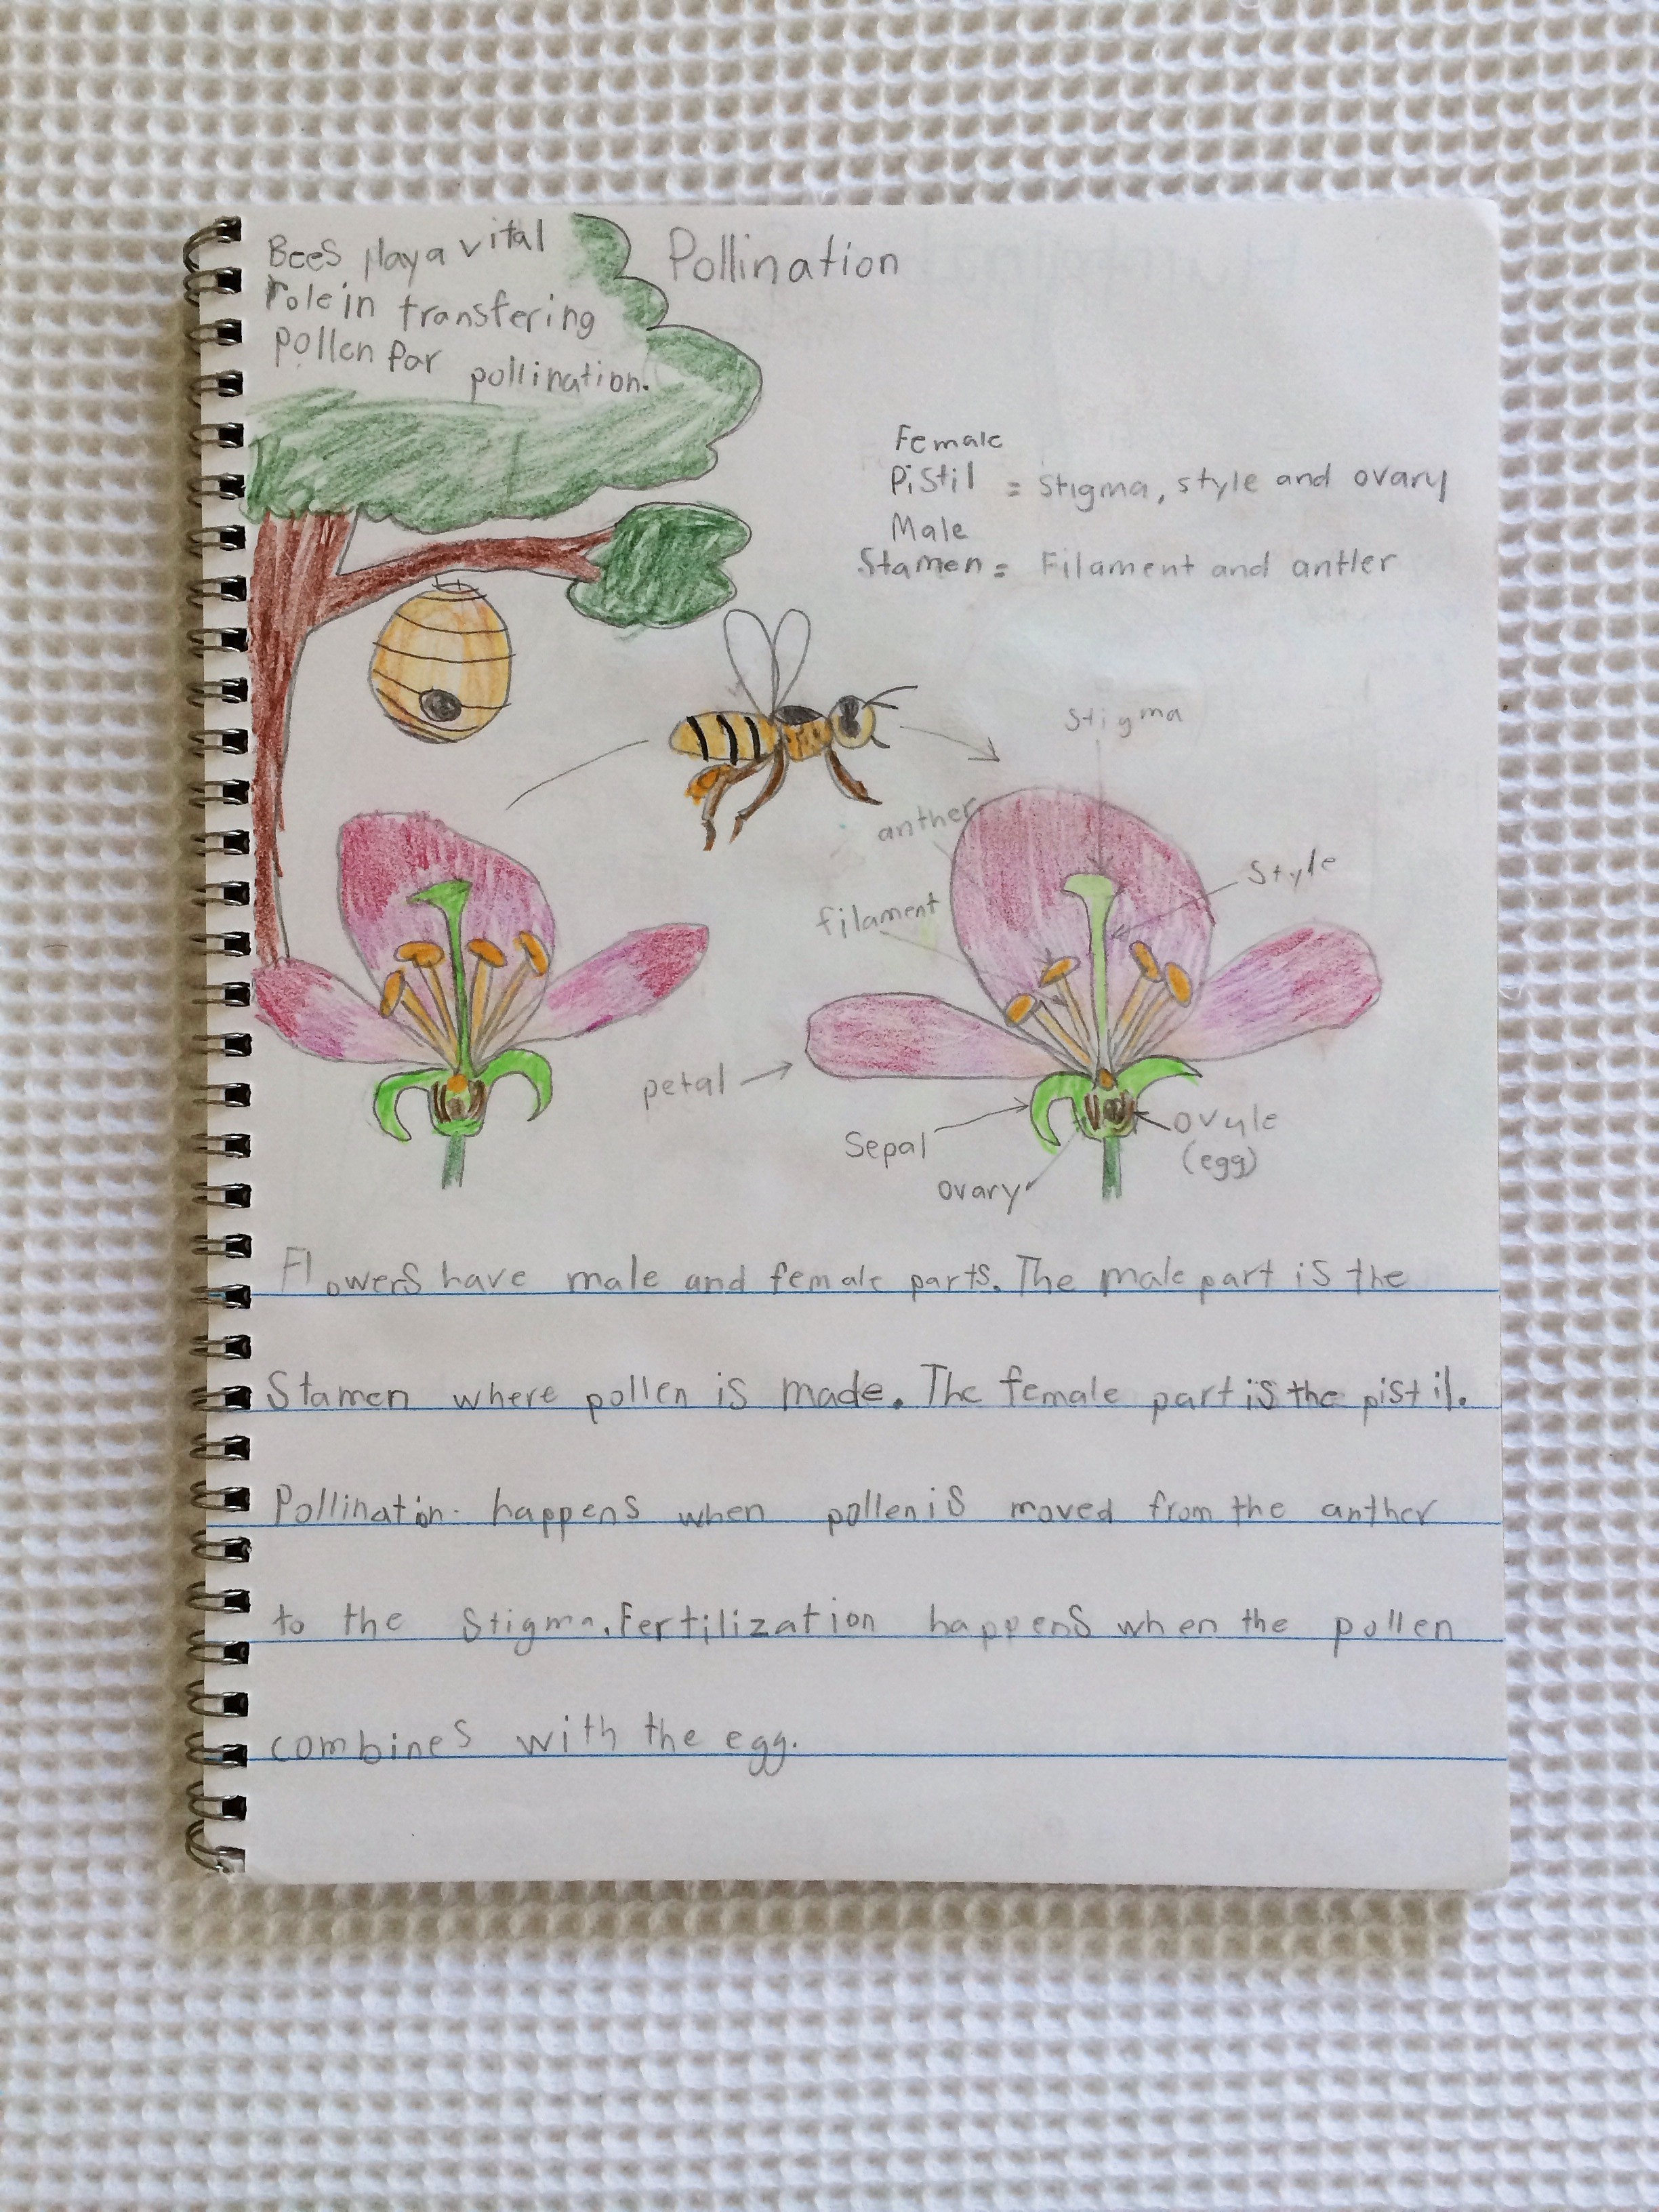 Bees play a vital
role in transfering
pollen for pollination.
Pollination
Female
Pistil = stigma, style and ovary
Male
Stamen = Filament and antler
stigma
anther
style
filament
petal
Sepal
ovyle
(egg)
ovary
Flowers have male and female parts. The male part is the
Stamen where pollen is made. The female part is the pistil.
Pollination happens when pollen is moved from the anther
to the Stigma. Fertilization happens when the pollen
combines with the egg.